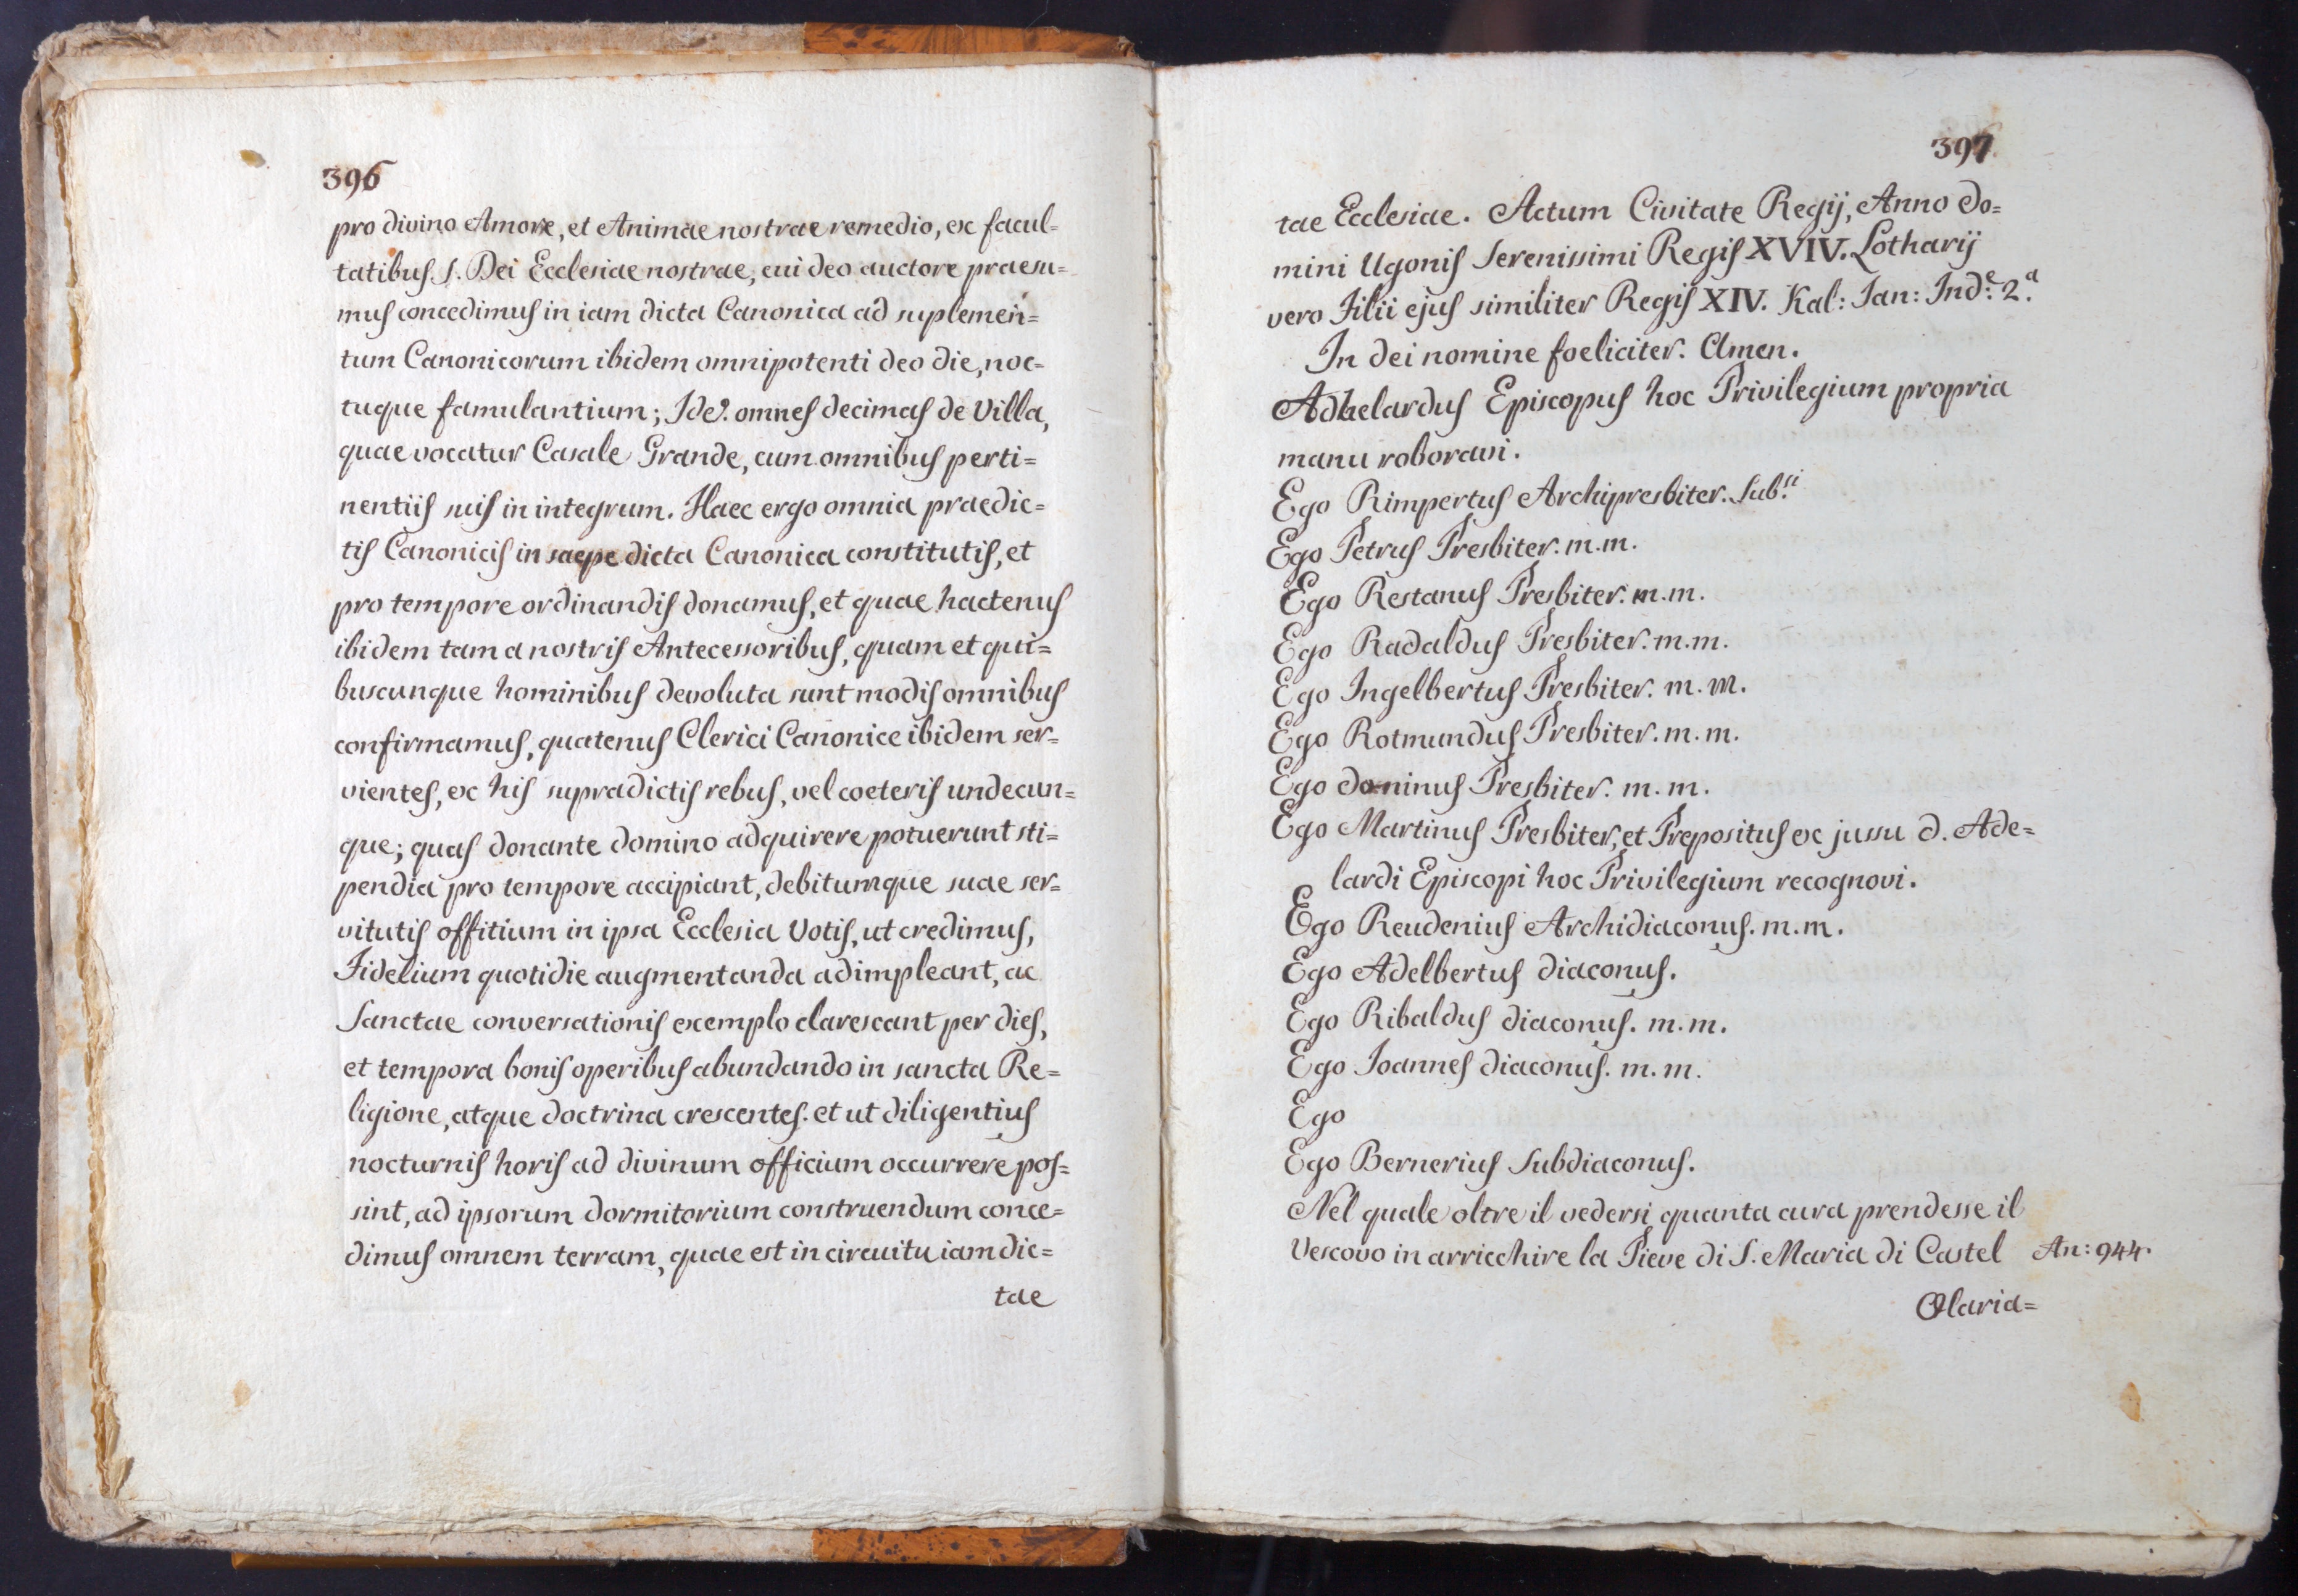 396
pro divino Amore, et Animae nostrae remedio, ex facul=
tatibus S. Dei Ecclesiae nostrae, cui deo auctore praesu=
mus concedimus in iam dicta Canonica ad suplemen=
tum Canonicorum ibidem omnipotenti deo die, noc=
tuque famulantium; Ide. omnes decimas de Villa,
quae vocatur Casale Grande, cum omnibus perti=
nentiis suis in integrum. Haec ergo omnia praedic=
tis Canonicis in saepe dicta Canonica constitutis, et
pro tempore ordinandis donamus, et quae hactenus
ibidem tam a nostris Antecessoribus, quam et qui=
buscunque hominibus devoluta sunt modis omnibus
confirmamus, quatenus Clerici Canonice ibidem ser=
vientes, ex his supradictis rebus, vel coeteris undecun=
que; quas donante domino adquirere potuerunt sti=
pendia pro tempore accipiant, debitumque suae ser=
vitutis offitium in ipsa Ecclesia Votis, ut credimus,
Fidelium quotidie augmentanda adimpleant, ac
Sanctae conversationis exemplo clarescant per dies,
et tempora bonis operibus abundando in sancta Re=
ligione, atque doctrina crescentes. et ut diligentius
nocturnis horis ad divinum officium occurrere pos=
sint, ad ipsorum dormitorium construendum conce=
dimus omnem terram, quae est in circuitu iam dic=
tae
397
tae Ecclesiae. Actum Civitate Regij, Anno do=
mini Ugonis Serenissimi Regis XVIV. Lotharij
vero Filii ejus similiter Regis XIV. Kal: Ian: Ind.e 2.a
In dei nomine foeliciter. Amen.
Adhelardus Episcopus hoc Privilegium propria
manu roboravi.
Ego Rimpertus Archipresbiter. Sub.si
Ego Petrus Presbiter. m.m.
Ego Restanus Presbiter. m.m.
Ego Radaldus Presbiter. m.m.
Ego Ingelbertus Presbiter. m.m.
Ego Rotmundus Presbiter. m.m.
Ego dominus Presbiter. m.m.
Ego Martinus Presbiter, et Prepositus ex jussu d. Ade=
lardi Episcopi hoc Privilegium recognovi.
Ego Reudenius Archidiaconus. m.m.
Ego Adelbertus diaconus.
Ego Ribaldus diaconus. m.m.
Ego Ioannes diaconus. m.m.
Ego
Ego Bernerius Subdiaconus.
Nel quale oltre il vedersi quanta cura prendesse il
Vescovo in arricchire la Pieve di S. Maria di Castel An: 944.
Olaria=